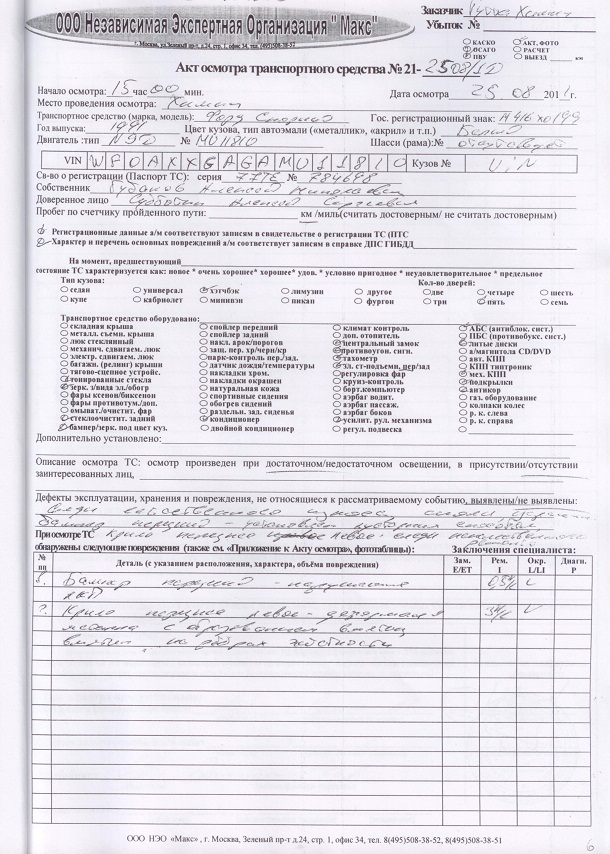 ООО Независимая Экспертная Организация " Макс"
г. Москва, ул.Зеленый пр-т, д.24, стр. 1, офис 34, тел. (495)508-38-52
Заказчик
Убыток №
КАСКО АКТ. ФОТО
ОСАГО РАСЧЕТ
ПВУ ВЫЕЗД км
Акт осмотра транспортного средства № 21- 2508/1D
Начало осмотра: 15 час 00 мин. Дата осмотра 25 08 2011г.
Место проведения осмотра: Химки
Транспортное средство (марка, модель): Форд Гос. регистрационный знак: М916ХО199
Год выпуска: 1991 Цвет кузова, тип автоэмали («металлик», «акрил» и т.п.) Белый
Двигатель :тип № MU11810 Шасси (рама):№ отсутствует
VIN WF0AXXGAGAMU11810 Кузов № VIN
Св-во о регистрации (Паспорт ТС): серия 77ТЕ № 784698
Собственник Алексей Николаевич
Доверенное лицо Субботин Алексей Сергеевич
Пробег по счетчику пройденного пути: км /миль(считать достоверным/ не считать достоверным)
Регистрационные данные а/м соответствуют записям в свидетельстве о регистрации ТС (ПТС
Характер и перечень основных повреждений а/м соответствует записям в справке ДПС ГИБДД
На момент, предшествующий
состояние ТС характеризуется как: новое * очень хорошее* хорошее* удов. * условно пригодное * неудовлетворительное * предельное
Тип кузова: Кол-во дверей:
седан универсал хэтчбэк лимузин другое две четыре шесть
купе кабриолет минивэн пикап фургон три пять семь
Транспортное средство оборудовано:
складная крыша спойлер передний климат контроль АБС (антиблок. сист.)
металл. съемн. крыша спойлер задний доп. отопитель ПБС (противобукс. сист.)
люк стеклянный накл. арок/порогов центральный замок литые диски
механич. сдвигаем. люк защ. пер. хр/черн/кр противоугон. сигн. а/магнитола CD/DVD
электр. сдвигаем. люк парк-контроль пер./зад. тахометр авт. КПП
багажн. (релинг) крыши датчик дождя/температуры эл. ст-подъемн.пер/зад КПП типтроник
тягово-сцепное устройс. накладки хром. регулировка фар мех. КПП
тонированные стекла накладки окрашен круиз-контроль подкрылки
зерк. з/вида эл./обогр натуральная кожа борт.компьютер антикор
фары ксенон/биксенон спортивные сидения аэрбаг водит. газ. оборудование
фары противотум./доп. обогрев сидений аэрбаг пассаж. колпаки колес
омыват./очистит. фар раздельн. зад. сиденья аэрбаг боков р. к. слева
стеклоочистит. задний кондиционер усилит. рул. механизма р. к. справа
бампер/зерк. под цвет куз. двойной кондиционер регул. подвеска
Дополнительно установлено:
Описание осмотра ТС: осмотр произведен при достаточном/недостаточном освещении, в присутствии/отсутствии
заинтересованных лиц,
Дефекты эксплуатации, хранения и повреждения, не относящиеся к рассматриваемому событию, выявлены/не выявлены:
Следы естественного износа
Бампер передний - установлен кустарным способом
При осмотре ТС Крыло переднее левое - следы некачественного
обнаружены следующие повреждения (также см. «Приложение к Акту осмотра», фототаблицы): Заключения специалиста:
№ пп Деталь (с указанием расположения, характера, объёма повреждения) Зам. E/ET Рем. I Окр. L/LI Диагн. P
1. Бампер передний - нарушение
ЛКП
2. Крыло переднее левое - деформация
металла с образованием вмятин
на ребрах жесткости
ООО НЭО «Макс» , г. Москва, Зеленый пр-т д.24, стр. 1, офис 34, тел. 8(495)508-38-52, 8(495)508-38-51
6